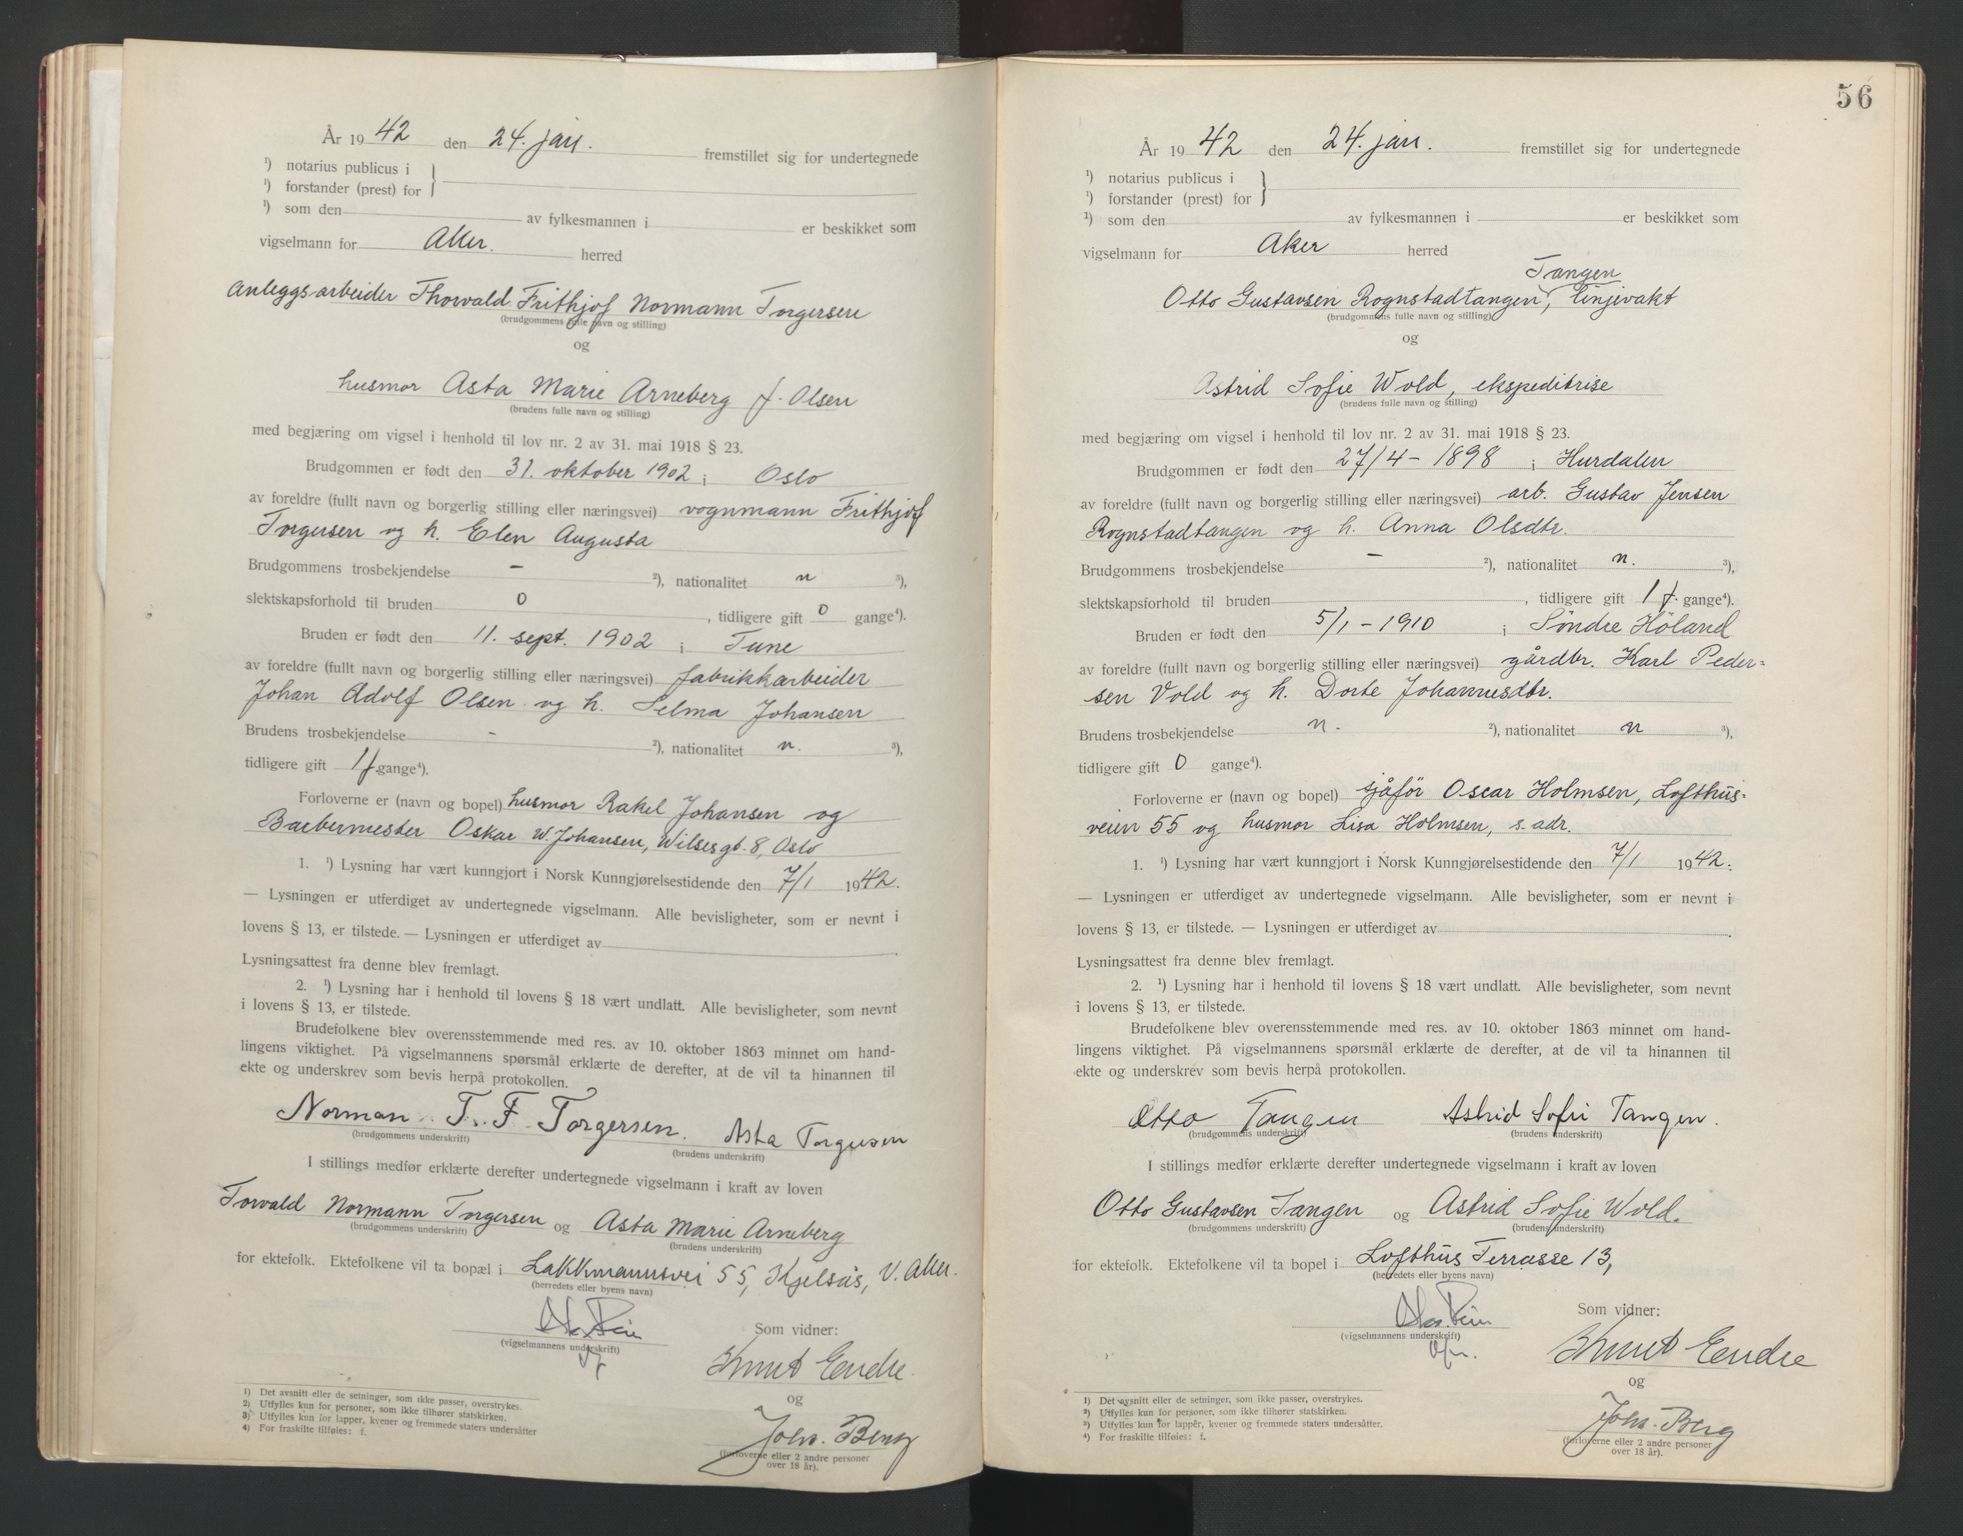 År 1942 den 24. jan. fremstillet sig for undertegnede
¹) notarius publicus i
¹) forstander (prest) for
¹) som den av fylkesmannen i er beskikket som
vigselmann for Aker. herred
Anleggsarbeider Thorvald Frithjof Normann Torgersen
(brudgommens fulle navn og stilling)
og
husmor Asta Marie Arneberg f. Olsen
(brudens fulle navn og stilling)
med begjæring om vigsel i henhold til lov nr. 2 av 31. mai 1918 § 23.
Brudgommen er født den 31. oktober 1902 i Oslo
av foreldre (fullt navn og borgerlig stilling eller næringsvei) vognmann Frithjof
Torgersen og h. Elen Augusta
Brudgommens trosbekjendelse - ²), nationalitet n ³),
slektskapsforhold til bruden 0, tidligere gift 0 gange⁴).
Bruden er født den 11. sept. 1902 i Tune
av foreldre (fullt navn og borgerlig stilling eller næringsvei) fabrikkarbeider
Johan Adolf Olsen og h. Selma Johansen
Brudens trosbekjendelse - ²), nationalitet n. ³),
tidligere gift 1 f. gange⁴).
Forloverne er (navn og bopel) husmor Rakel Johansen og
Barbermester Oskar W. Johansen, Wilsesgt. 8, Oslo
1. ¹) Lysning har vært kunngjort i Norsk Kunngjørelsestidende den 7/1 1942.
— Lysningen er utferdiget av undertegnede vigselmann. Alle bevisligheter, som er nevnt i
lovens § 13, er tilstede. — Lysningen er utferdiget av
Lysningsattest fra denne blev fremlagt.
2. ¹) Lysning har i henhold til lovens § 18 vært undlatt. Alle bevisligheter, som nevnt
i lovens § 13, er tilstede.
Brudefolkene blev overensstemmende med res. av 10. oktober 1863 minnet om hand-
lingens viktighet. På vigselmannens spørsmål erklærte de derefter, at de vil ta hinannen til
ekte og underskrev som bevis herpå protokollen.
Norman T. F. Torgersen. Asta Torgersen
(brudgommens underskrift) (brudens underskrift)
I stillings medfør erklærte derefter undertegnede vigselmann i kraft av loven
Torvald Normann Torgersen og Asta Marie Arneberg
(brudgommens underskrift) (brudens underskrift)
for ektefolk. Ektefolkene vil ta bopæl i Lakkmannsvei 55, Kjelsås, V. Aker.
(herredets eller byens navn)
(vigselmannens underskrift)
Som vidner:
Knut Endre.
og
Johs. Berg
(forloverne eller 2 andre personer
over 18 år).
1) Det avsnitt eller de setninger, som ikke passer, overstrykes.
2) Utfylles kun for personer, som ikke tilhører statskirken.
3) Utfylles kun for lapper, kvener og fremmede staters undersåtter
4) For fraskilte tilføies: f.
56
År 1942 den 24. jan. fremstillet sig for undertegnede
¹) notarius publicus i
¹) forstander (prest) for
¹) som den av fylkesmannen i er beskikket som
vigselmann for Aker herred
Tangen
Otto Gustavsen Rognstadtangen, linjevakt
(brudgommens fulle navn og stilling)
og
Astrid Sofie Wold, ekspeditrise
(brudens fulle navn og stilling)
med begjæring om vigsel i henhold til lov nr. 2 av 31. mai 1918 § 23.
Brudgommen er født den 27/4 - 1898 i Hurdalen
av foreldre (fullt navn og borgerlig stilling eller næringsvei) arb. Gustav Jensen
Rognstadtangen og h. Anna Olsdtr.
Brudgommens trosbekjendelse - ²), nationalitet n. ³),
slektskapsforhold til bruden, tidligere gift 1 f. gange⁴).
Bruden er født den 5/1 - 1910 i Söndre Höland
av foreldre (fullt navn og borgerlig stilling eller næringsvei) gårdbr. Karl Peder=
sen Vold og h. Dorte Johannesdtr.
Brudens trosbekjendelse n. ²), nationalitet n ³),
tidligere gift 0 gange⁴).
Forloverne er (navn og bopel) sjåför Oscar Holmsen, Lofthus=
veien 55 og husmor Lisa Holmsen, s. adr.
1. ¹) Lysning har vært kunngjort i Norsk Kunngjørelsestidende den 7/1 1942.
— Lysningen er utferdiget av undertegnede vigselmann. Alle bevisligheter, som er nevnt i
lovens § 13, er tilstede. — Lysningen er utferdiget av
Lysningsattest fra denne blev fremlagt.
2. ¹) Lysning har i henhold til lovens § 18 vært undlatt. Alle bevisligheter, som nevnt
i lovens § 13, er tilstede.
Brudefolkene blev overensstemmende med res. av 10. oktober 1863 minnet om hand-
lingens viktighet. På vigselmannens spørsmål erklærte de derefter, at de vil ta hinannen til
ekte og underskrev som bevis herpå protokollen.
Otto Tangen Astrid Sofie Tangen.
(brudgommens underskrift) (brudens underskrift)
I stillings medfør erklærte derefter undertegnede vigselmann i kraft av loven
Otto Gustavsen Tangen og Astrid Sofie Wold.
(brudgommens underskrift) (brudens underskrift)
for ektefolk. Ektefolkene vil ta bopel i Lofthus Terrasse 13,
(herredets eller byens navn)
(vigselmannens underskrift)
Som vidner:
Knut Endre
og
Johs. Berg
(forloverne eller 2 andre personer
over 18 år).
¹) Det avsnitt eller de setninger, som ikke passer, overstrykes.
²) Utfylles kun for personer, som ikke tilhører statskirken.
³) Utfylles kun for lapper, kvener og fremmede staters undersåtter.
⁴) For fraskilte tilføies: f.